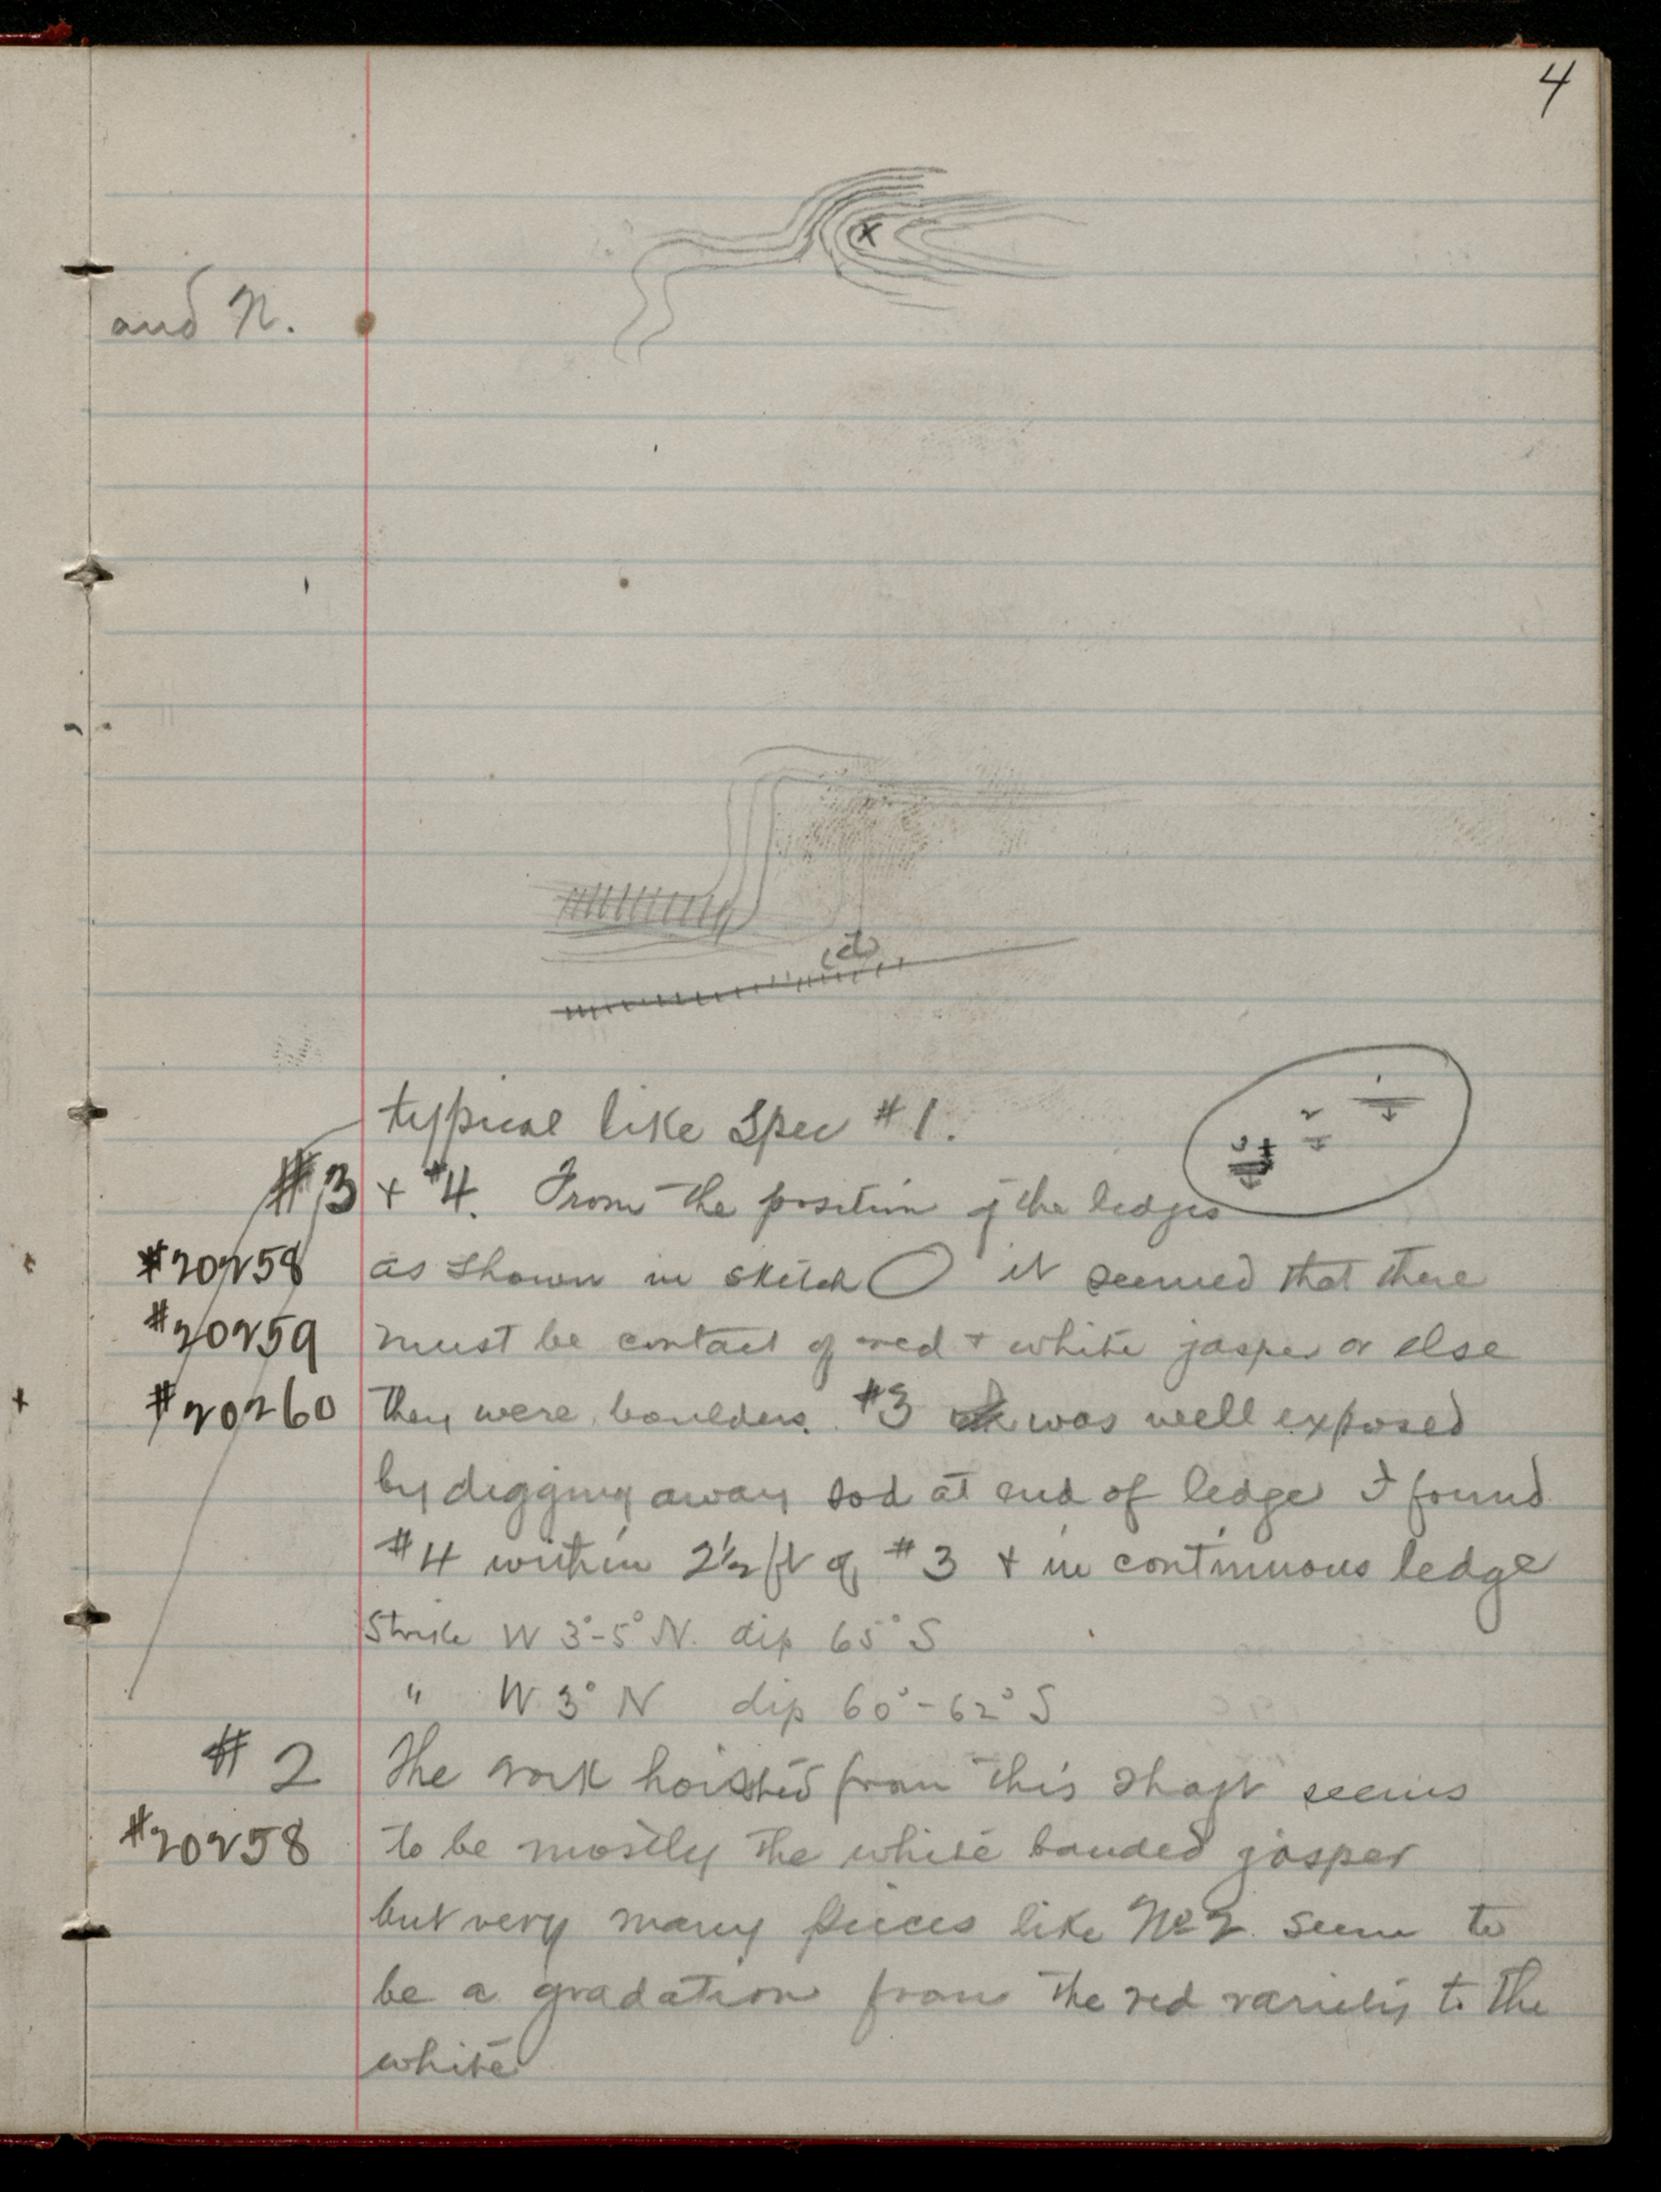 4
and N.
(d)
typical like Spec #1.
1
2
3 4
#3 + #4. From the position of the ledges
#20258 as shown in sketch it seemed that there
#20259 must be contact of red + white jasper or else
#20260 they were boulders. #3 was well exposed
by digging away sod at end of ledge I found
#4 within 2½ ft of #3 + in continuous ledge
Strike W 3°-5° N. dip 65° S
" W 3° N dip 60°-62° S
#2 The rock hoisted from this shaft seems
#20258 to be mostly the white banded jasper
but very many pieces like No 2 seem to
be a gradation from the red variety to the
white